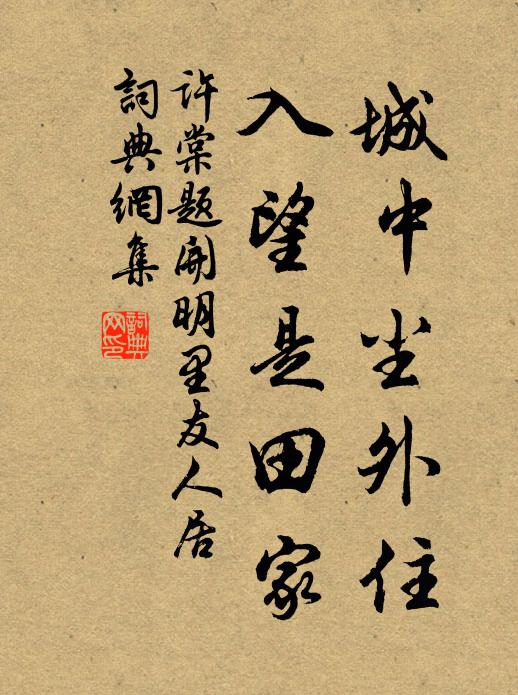 城中尘外住
入望是田家
許棠题開明里友人居
詞典網集
詞典
网印